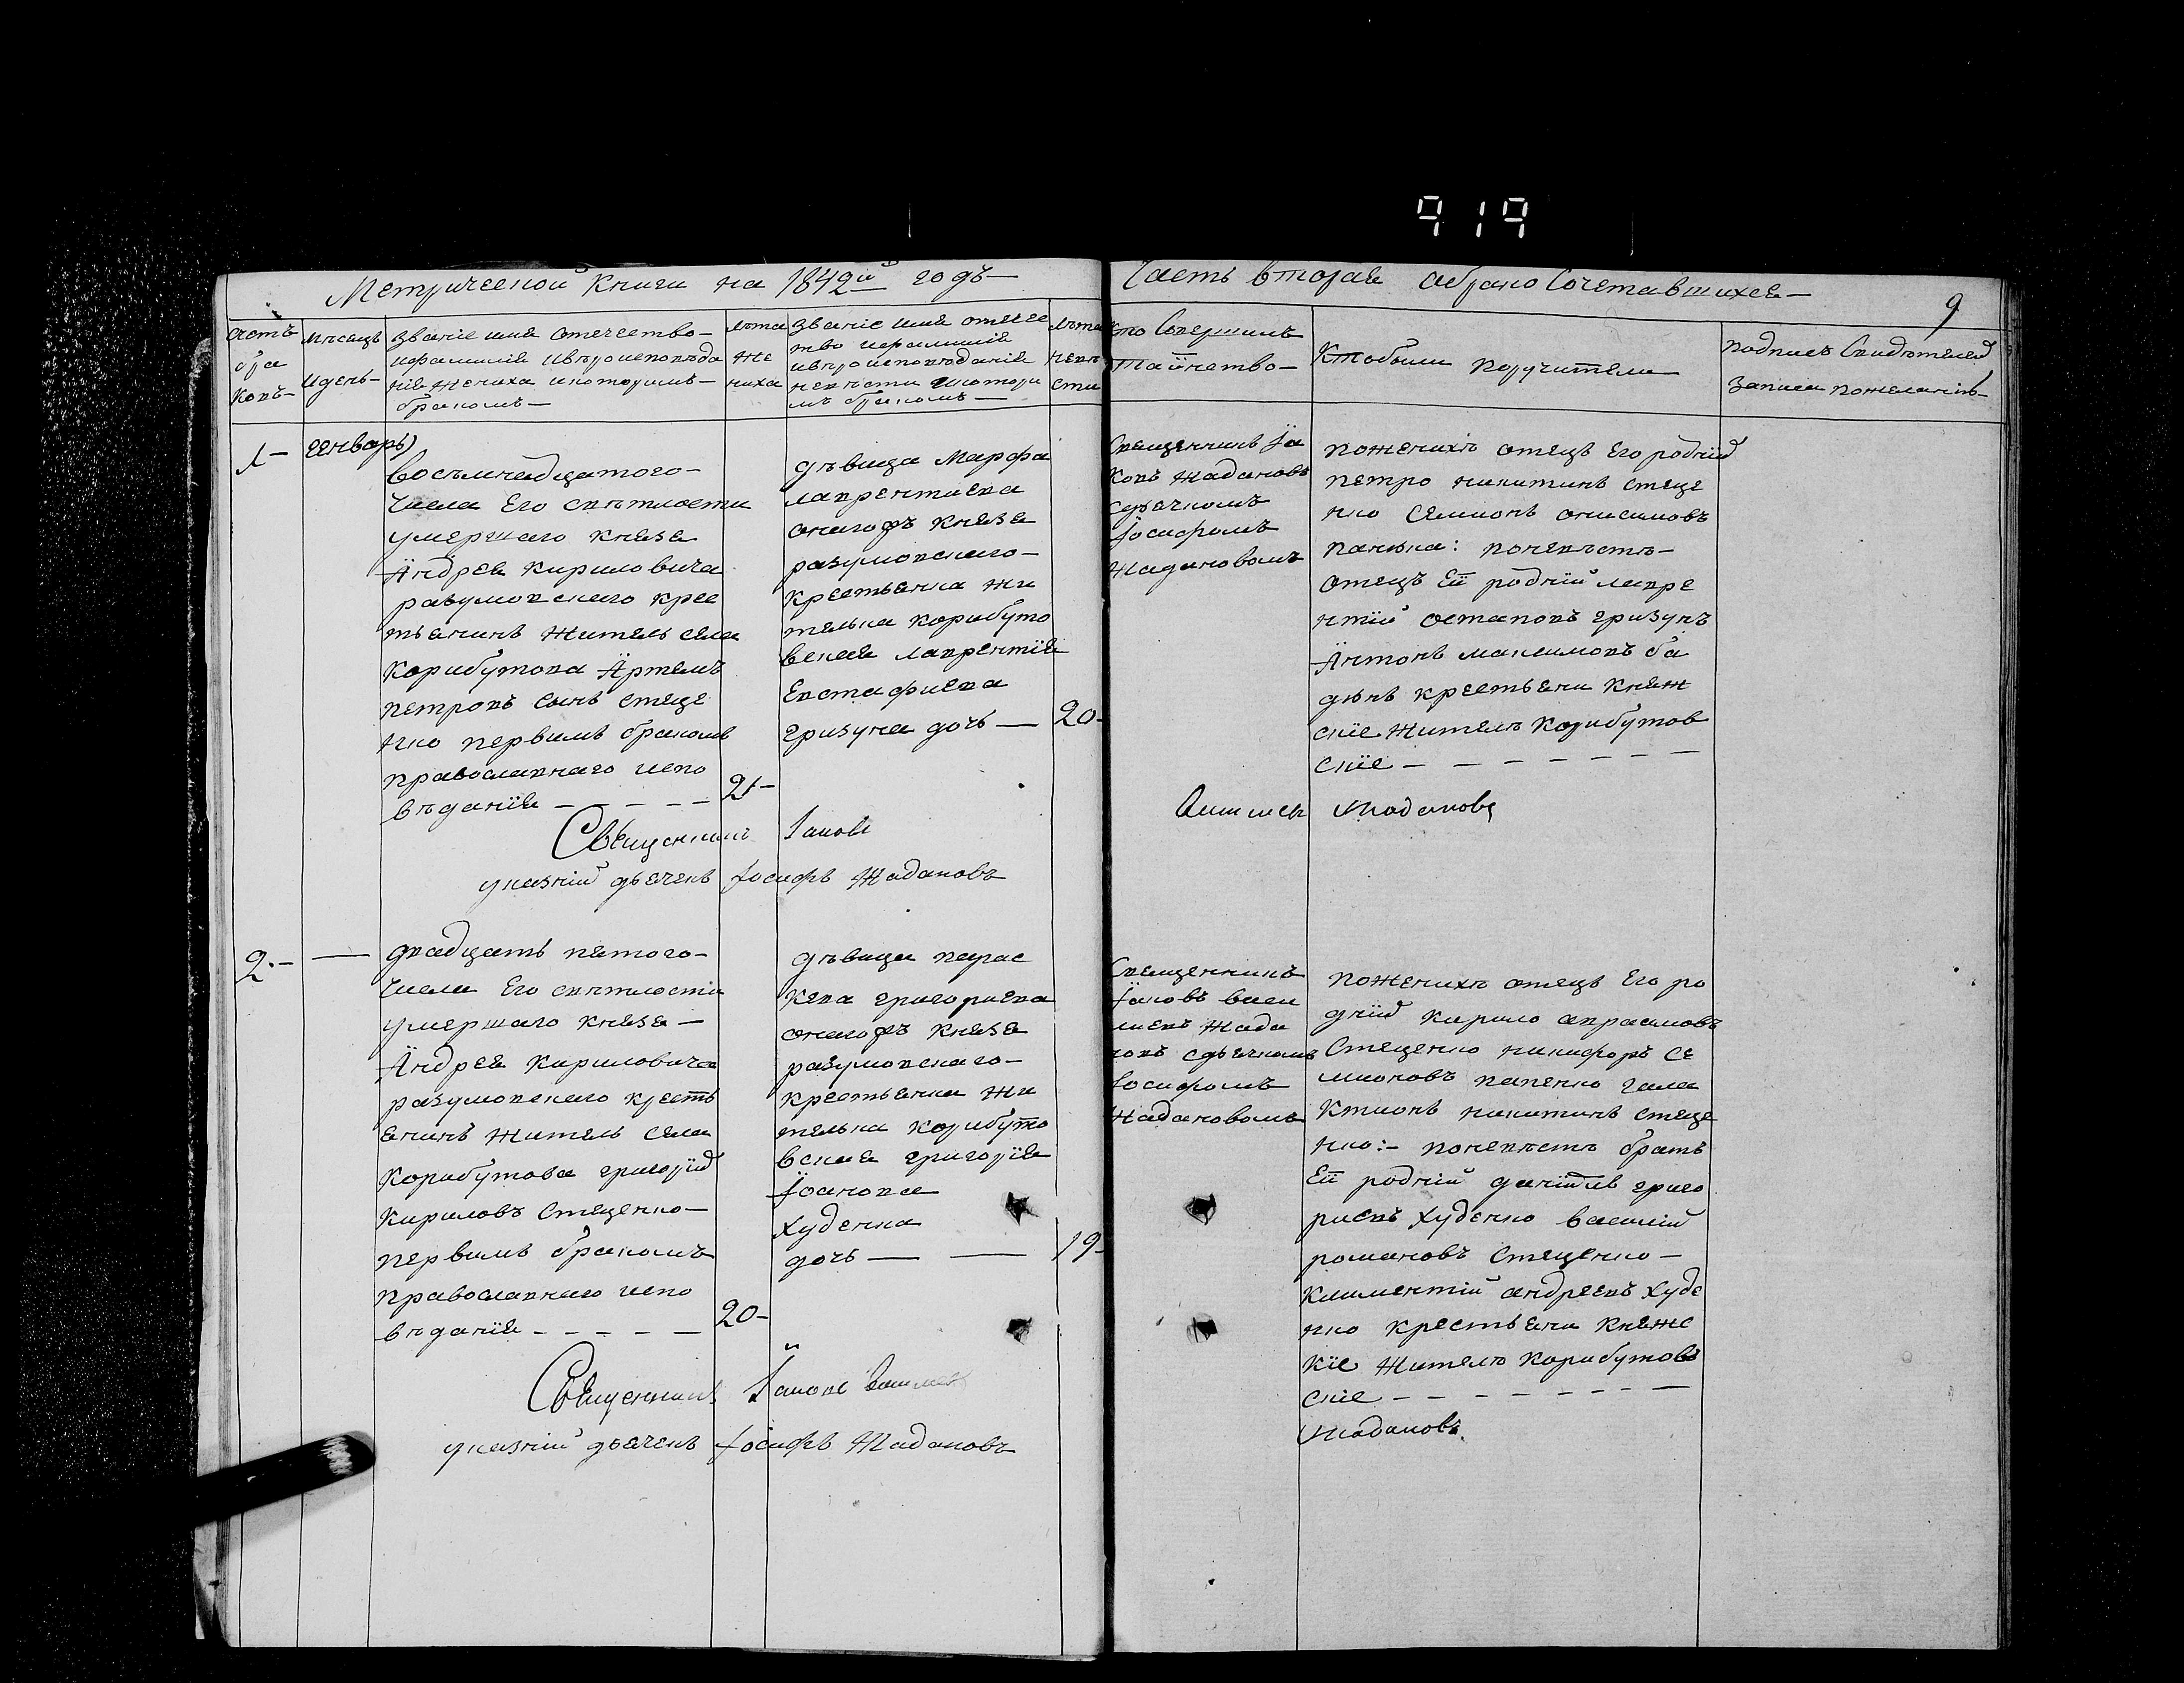 919
Метрической Книги на 1842й годъ—
Часть Вторая о бракосочетавшихся—
9
Счетъ
бра
ковъ—
Мѣсецъ
и день—
Званіе имя отечество—
и фамилія и вѣроисповѣда
нія жениха и которимъ—
бракомъ—
Лѣта
же
ниха
Званіе имя отечес
тво и фамилія
и вѣроисповѣданія
невѣсти и котори
мъ бракомъ—
Лѣта
невѣ
сти
Кто Совершилъ
Таинство—
Кто были поручители
Подписъ Свидѣтелей
Записи по желанію—
1—
Генварь
Восьмнадцатого—
Числа Его свѣтлости
умершаго князя
Андрея Кириловича
разумовскаго крес
тьянинъ житель села
Корибутова Артемъ
петровъ синъ стеце
нко первимъ бракомъ
православнаго испо
вѣданія — — — — —
21—
дѣвица Марфа
лаврентиева
оногожъ князя
разумовскаго—
крестьянка жи
телька корибуто
вская лаврентія
Евстафиева
гризуна дочь —
20—
Священникъ Іа
ковъ Жадановъ
сдьячкомъ
Іосифомъ
Жадановомъ
По женихѣ отецъ Его родній
петро никитинъ стеце
нко Семионъ онисимовъ
панька: по невѣстѣ—
отецъ Ей родній лавре
нтій остаповъ гризунъ
Антонъ максимовъ ба
дянъ крестьяни княж
скіе жителѣ Корибутов
скіе — — — — — — —
Священникъ Іаковъ
Жадановъ
указній дьячекъ Іосифъ Жадановъ
2.— —
двадцать пятого—
Числа Его свѣтлости
умершаго князя—
Андрея Кириловича
разумовскаго кресть
янинъ житель села
Корибутова григорій
Кириловъ Стеценко—
первимъ бракомъ
православнаго испо
вѣданія — — — — —
20—
дѣвица парас
кева григориева
оногожъ князя
разумовскаго—
крестьянка жи
телька Корибуто
вская григорія
Іоанова
Худенка
дочь — —
19—
Священникъ
Іаковъ васи
лиевъ Жада
новъ сдьячкомъ
Іосифомъ
Жадановомъ
По женихѣ отецъ Его ро
дній кирило авраамовъ
Стеценко никифоръ Се
мионовъ папенко гала
Ктионъ никитинъ стеце
нко:— по невѣстѣ братъ
Ей родній даніилъ григо
риевъ Худенко василій
романовъ Стеценко—
Климентій андреевъ Худе
нко крестьяни княжс
кіе жителѣ Корибутов
скіе — — — — — — —
Священникъ Іаковъ Василиев
Жадановъ
указній дьячекъ Іосифъ Жадановъ